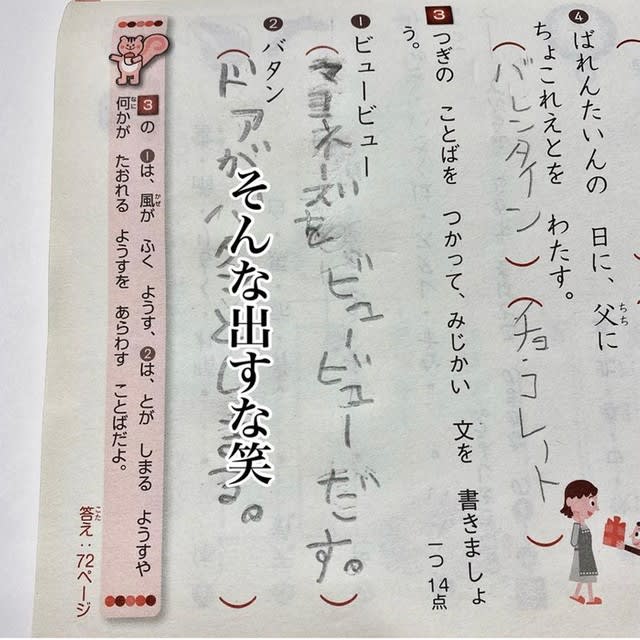 ④ ばれんたいんの 日に、父に
ちち
ちょこれえとを わたす。
（バレンタイン）（チョコレート）
3 つぎの ことばを つかって、みじかい 文を 書きましょ
う。
一つ14点
① ビュービュー
（マヨネーズをビュービューだす。）
② バタン
（ドアがバタンとしまる。）
そんな出すな笑
3の ①は、風が ふく ようす、②は、とが しまる ようすや
かぜ
何かが たおれる ようすを あらわす ことばだよ。
なに
答え：72ページ
こた